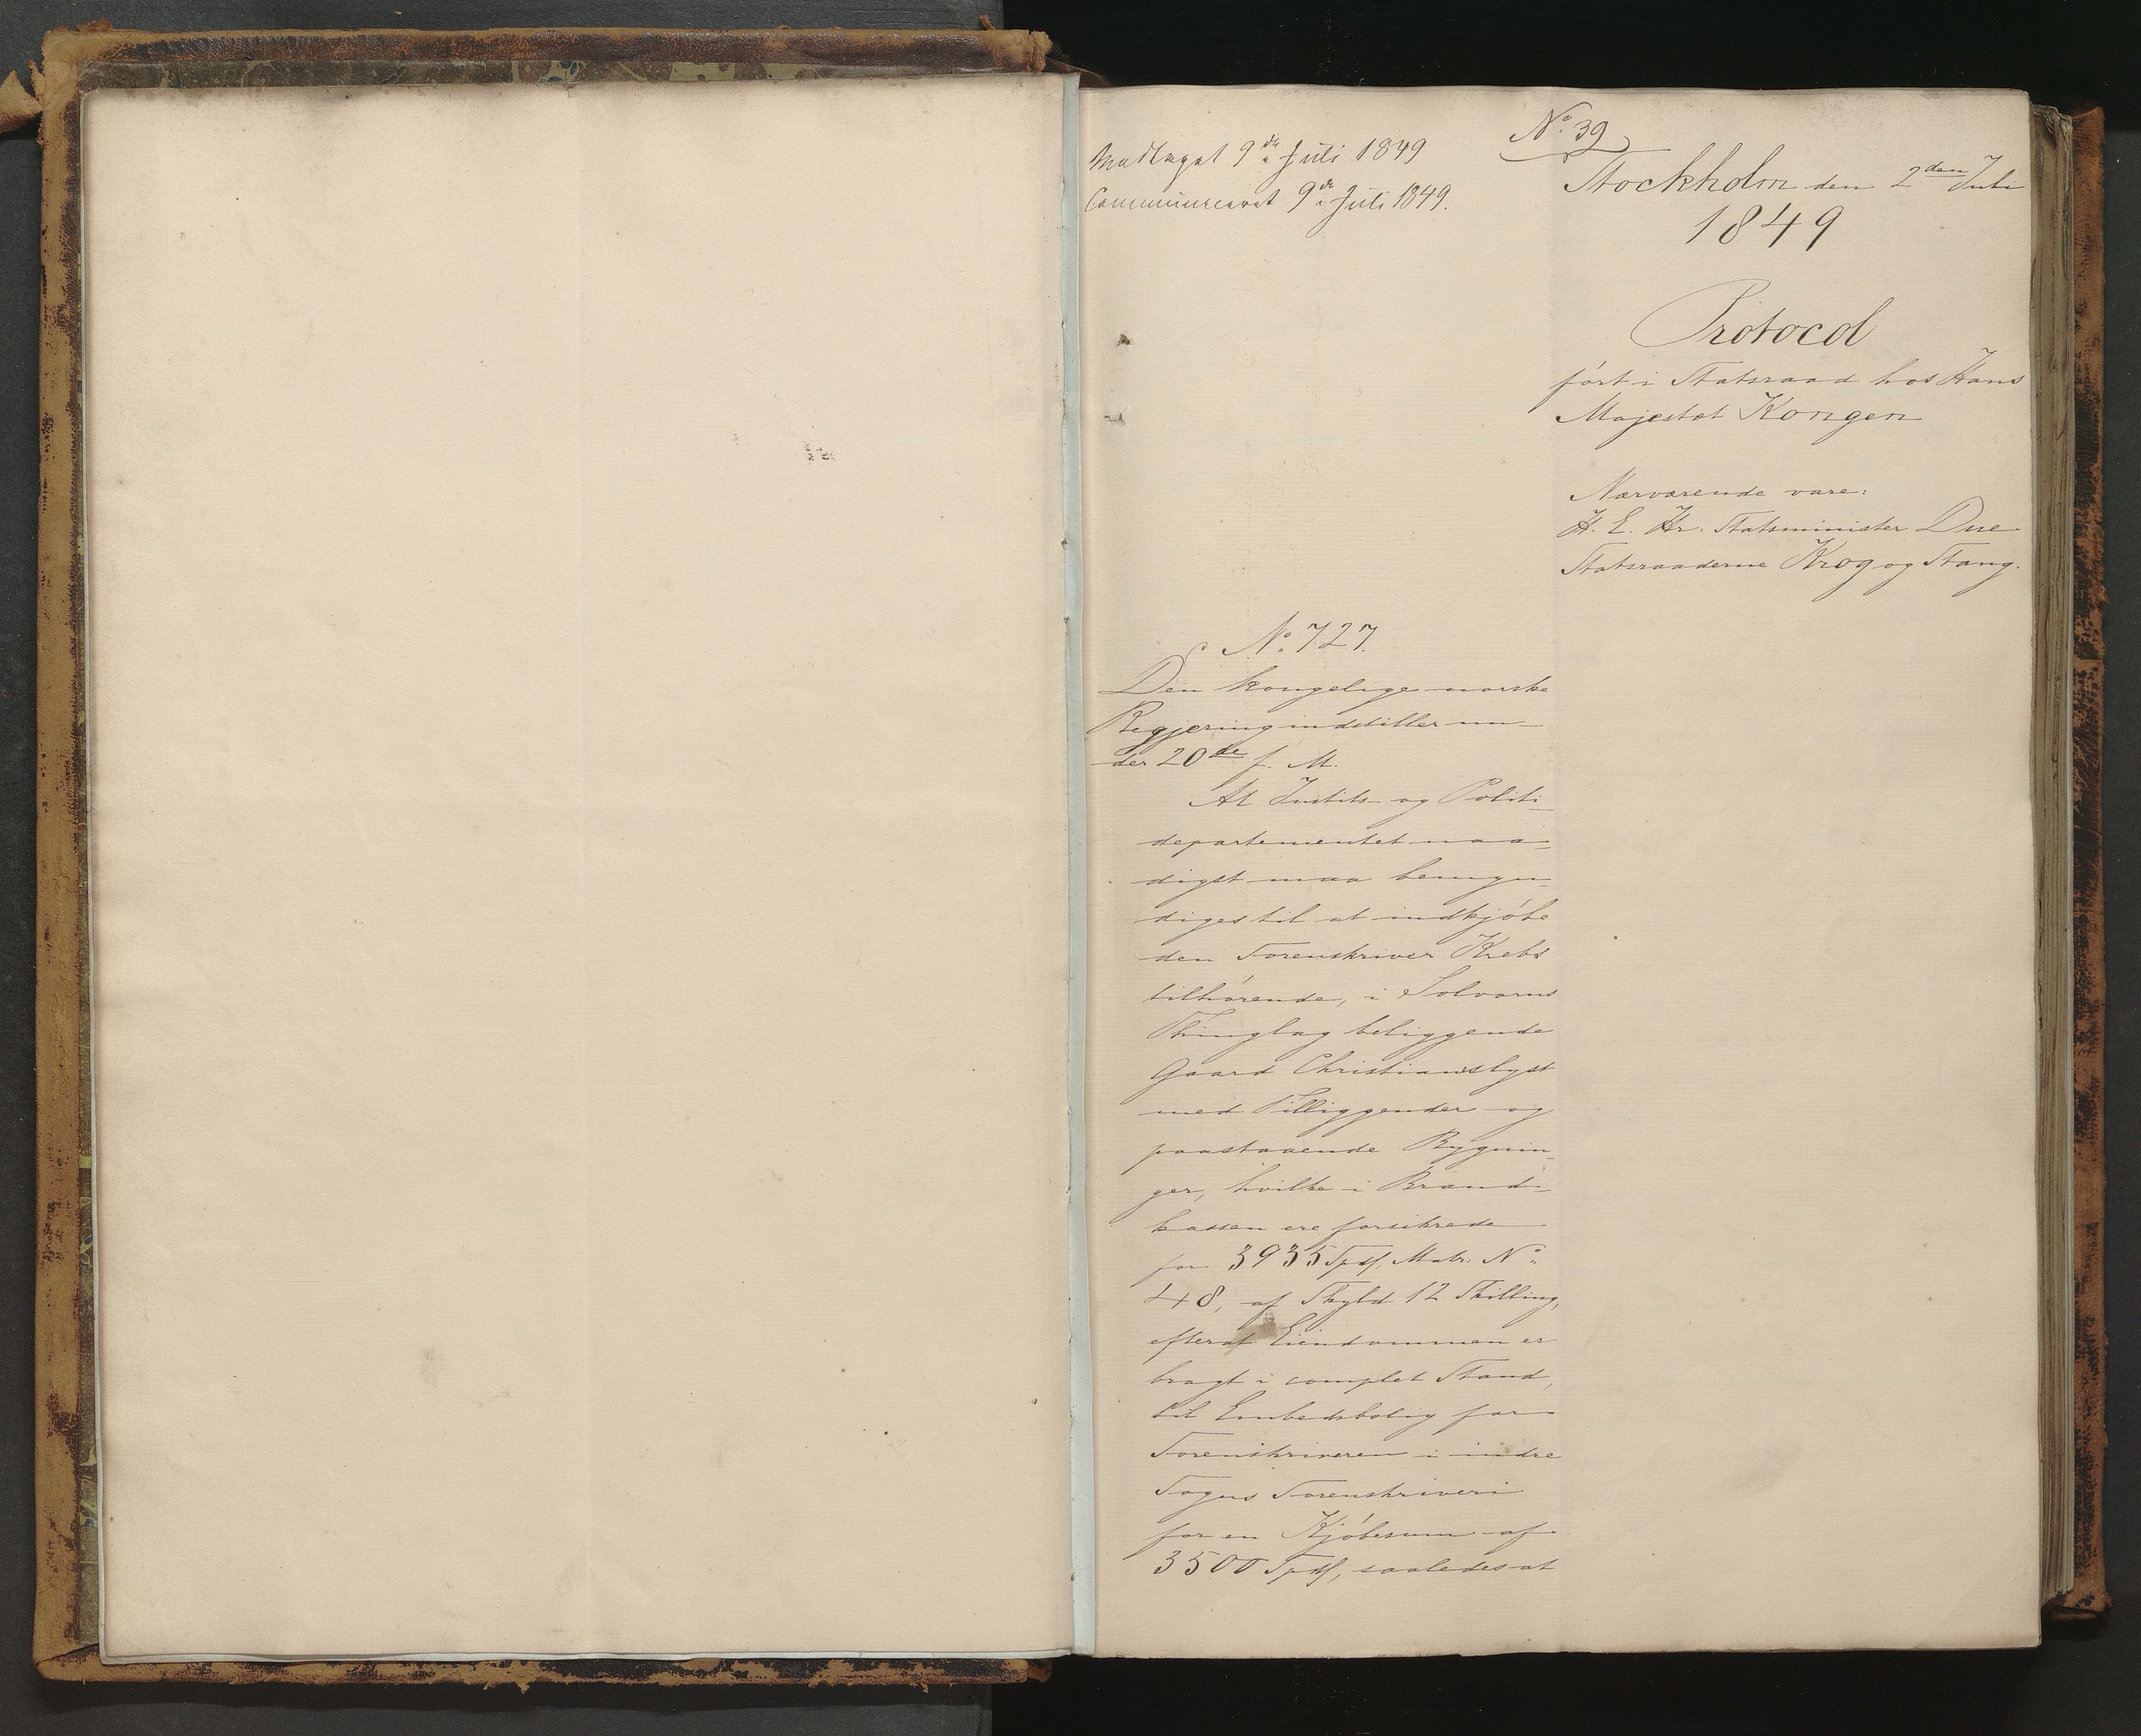 Modtaget 9de Juli 1849
Communiceret 9de Juli 1849.
No. 39
Stockholm den 2den Juli
1849
Protocol
ført i Statsraad hos Hans
Majestæt Kongen
Nærværende vare:
H. E. Hr. Statsminister Due
Statsraaderne Krog og Stang.
No. 727.
Den kongelige norske
Regjering indstiller un-
der 20de f. M.
At Justits- og Politi-
departementet naa-
digst maa bemyn-
diges til at indkjøbe
den Sorenskriver Krebs
tilhørende, i Solvorns
Thinglag beliggende
Gaard Christianslyst
med Tilliggender og
paastaaende Bygnin-
ger, hvilke i Brand-
kassen ere forsikrede
for 3935 Spd, Matr. No.
48, af Skyld 12 Skilling,
efterat Eiendommen er
bragt i complet Stand,
til Embedsbolig for
Sorenskriveren i indre
Sogns Sorenskriveri
for en Kjøbesum af
3500 Spd, saaledes at